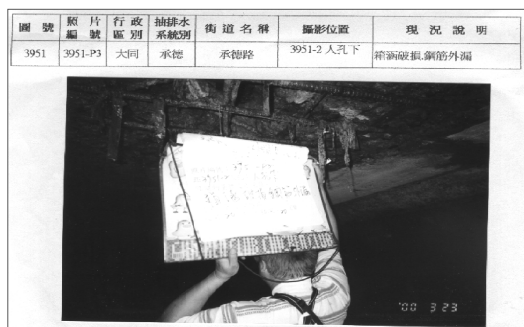 圖號 照片編號 行政區別 抽排水系統別 街道名稱 攝影位置 現況說明
3951 3951-P3 大同 承德 承德路 3951-2人孔下 箱涵破損.鋼筋外漏
'00 3 23